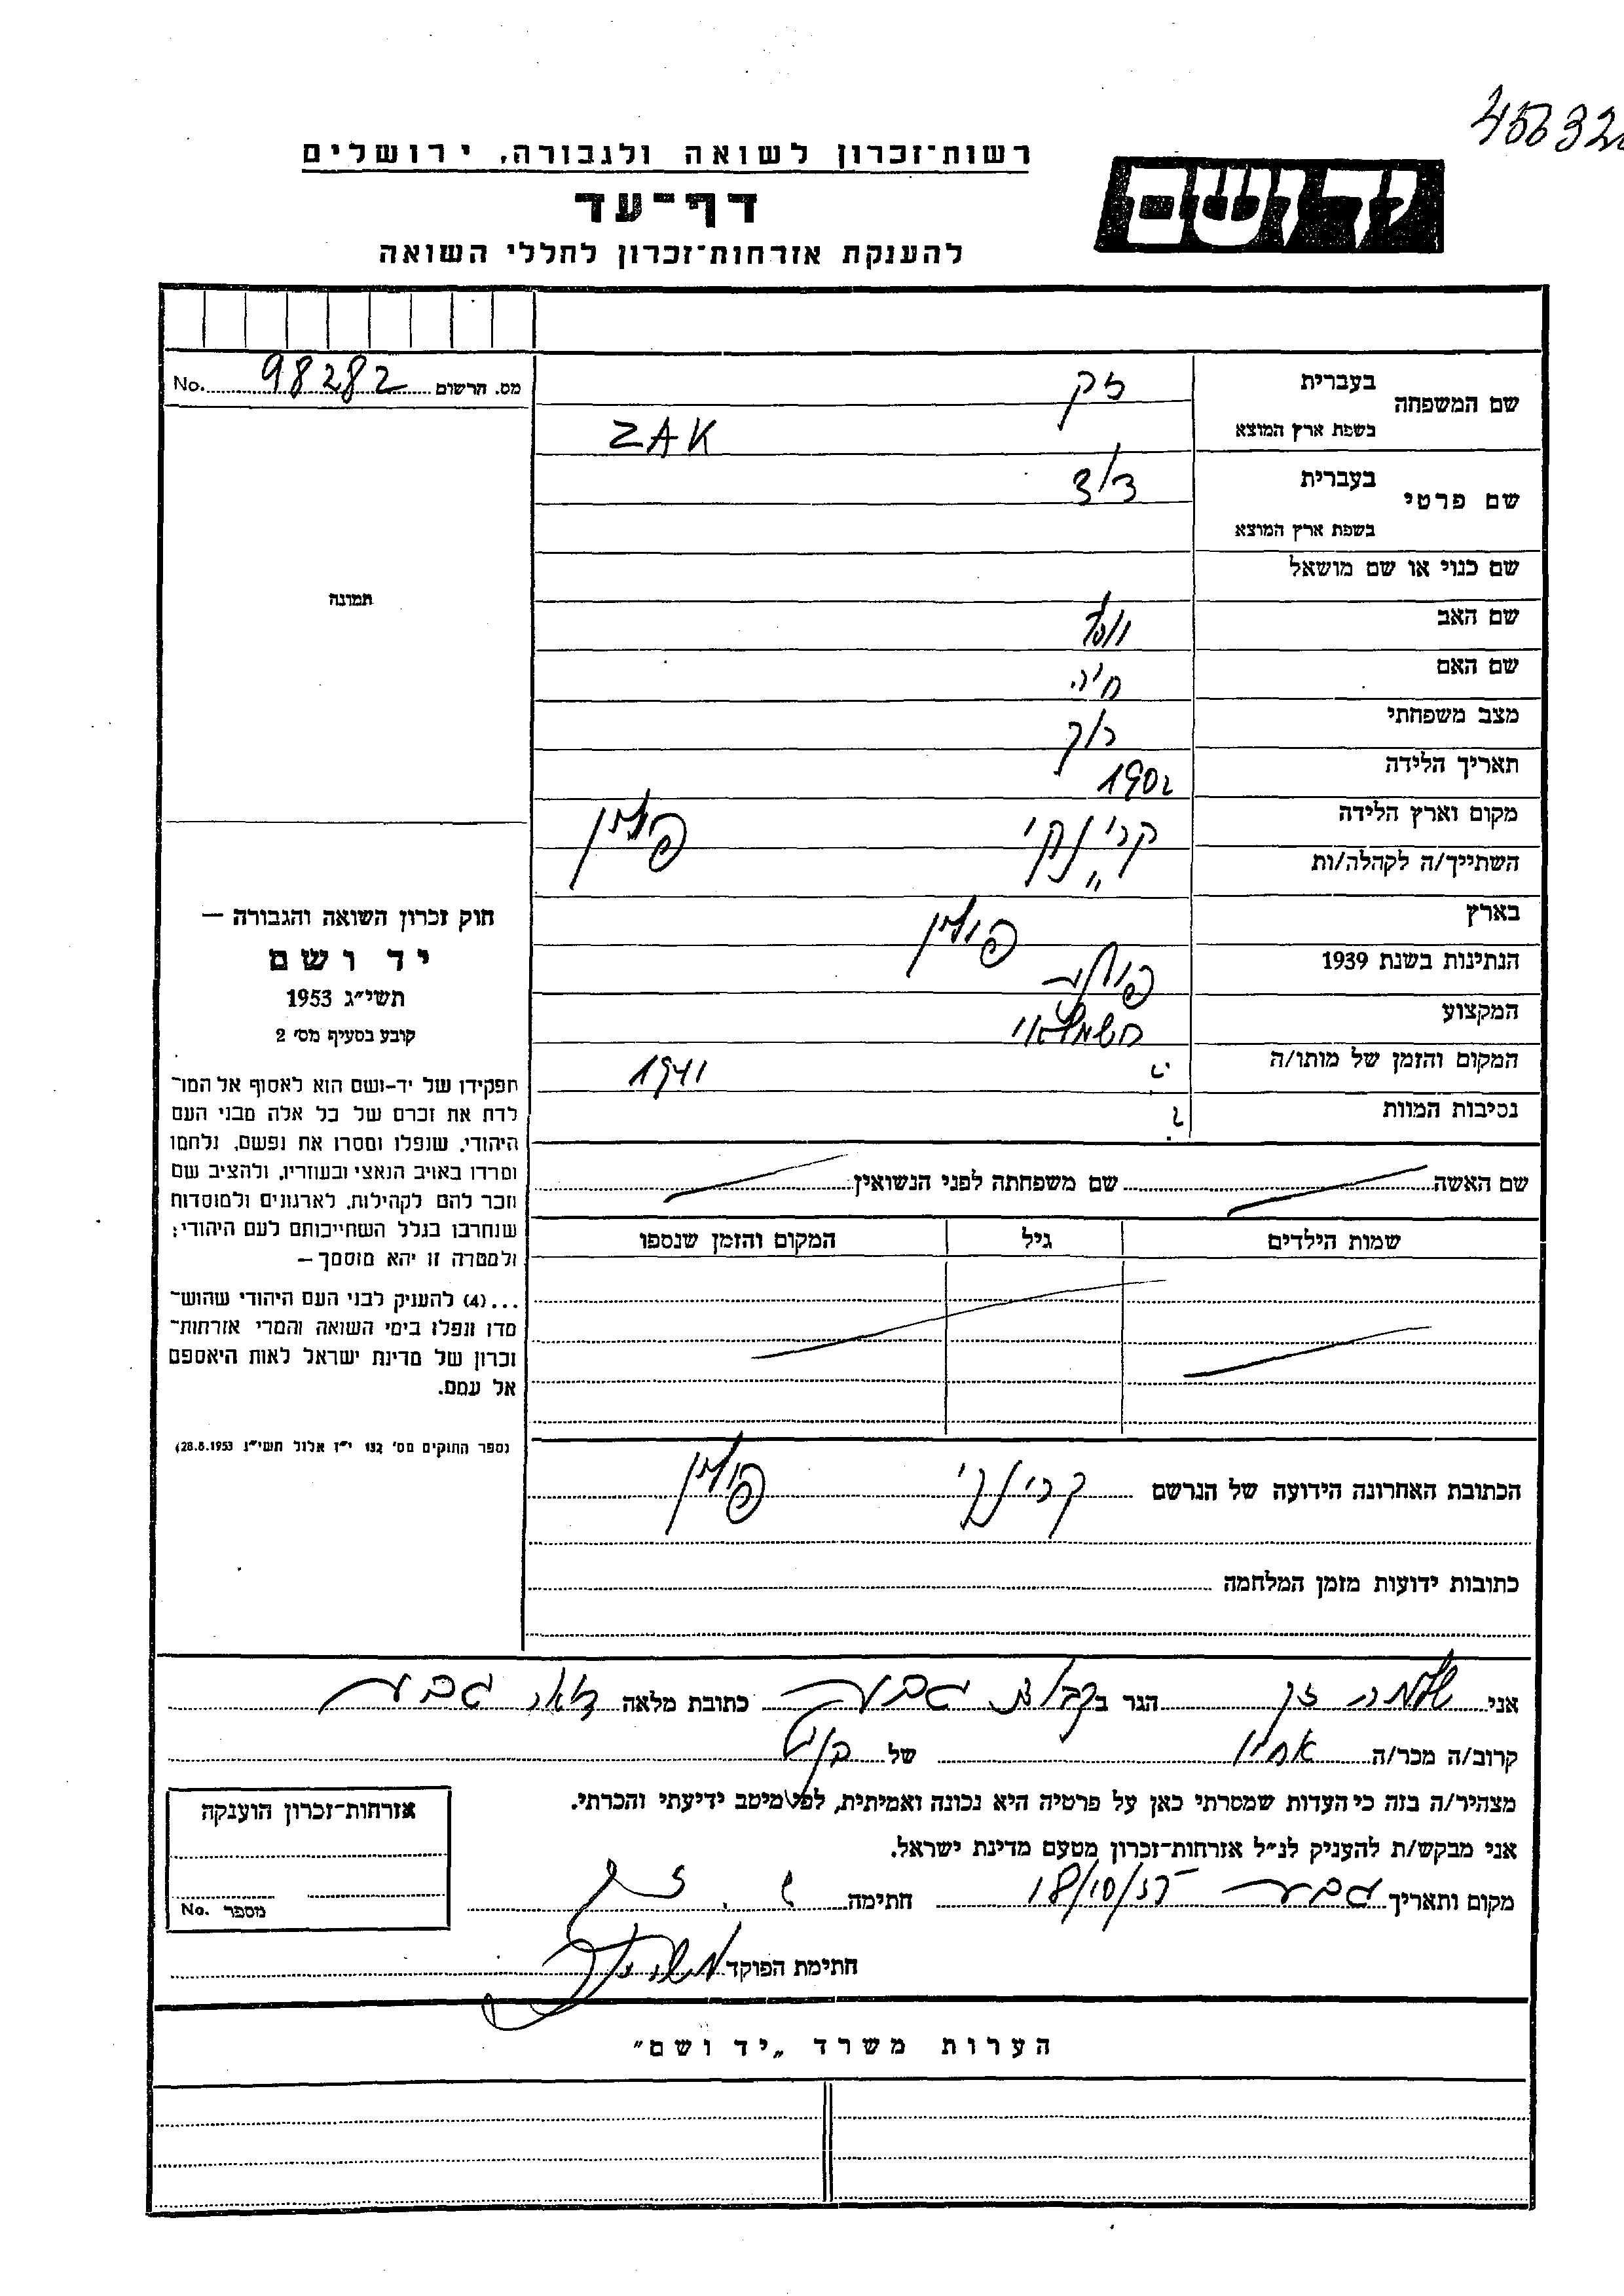 455326
רשות־זכרון לשואה ולגבורה, ירושלים
יד ושם
דף־עד
להענקת אזרחות־זכרון לחללי השואה
No. 98282 מס. הרשום
שם המשפחה בעברית זק
בשפת ארץ המוצא ZAK
שם פרטי בעברית
בשפת ארץ המוצא
שם כנוי או שם מושאל
שם האב
שם האם חיה
מצב משפחתי רוק
תאריך הלידה 1902
מקום וארץ הלידה קרינקי פולין
השתייך/ה לקהלה/ות "
בארץ פולין
הנתינות בשנת 1939 פולני
המקצוע חשמלאי
המקום והזמן של מותו/ה ? 1941
נסיבות המוות ?
תמונה
חוק זכרון השואה והגבורה —
יד ושם
תשי״ג 1953
קובע בסעיף מס׳ 2
תפקידו של יד־ושם הוא לאסוף אל המו־
לדת את זכרם של כל אלה מבני העם
היהודי, שנפלו ומסרו את נפשם, נלחמו
ומרדו באויב הנאצי ובעוזריו, ולהציב שם
וזכר להם לקהילות, לארגונים ולמוסדות
שנחרבו בגלל השתייכותם לעם היהודי;
ולמטרה זו יהא מוסמך —
...(4) להעניק לבני העם היהודי שהוש־
מדו ונפלו בימי השואה והמרי אזרחות־
זכרון של מדינת ישראל לאות היאספם
אל עמם.
(ספר החוקים מס׳ 132 י״ז אלול תשי״ג 28.8.1953)
שם האשה שם משפחתה לפני הנשואין
שמות הילדים גיל המקום והזמן שנספו
הכתובת האחרונה הידועה של הנרשם קרינקי פולין
כתובות ידועות מזמן המלחמה
אני שלמה זק הגר בקבוצת גבע כתובת מלאה דאר גבע
קרוב/ה מכר/ה אחיו של
מצהיר/ה בזה כי העדות שמסרתי כאן על פרטיה היא נכונה ואמיתית, לפי מיטב ידיעתי והכרתי.
אני מבקש/ת להעניק לנ״ל אזרחות־זכרון מטעם מדינת ישראל.
מקום ותאריך גבע 18/10/55 חתימה ש. זק
חתימת הפוקד
אזרחות־זכרון הוענקה
No. מספר
הערות משרד „יד ושם״